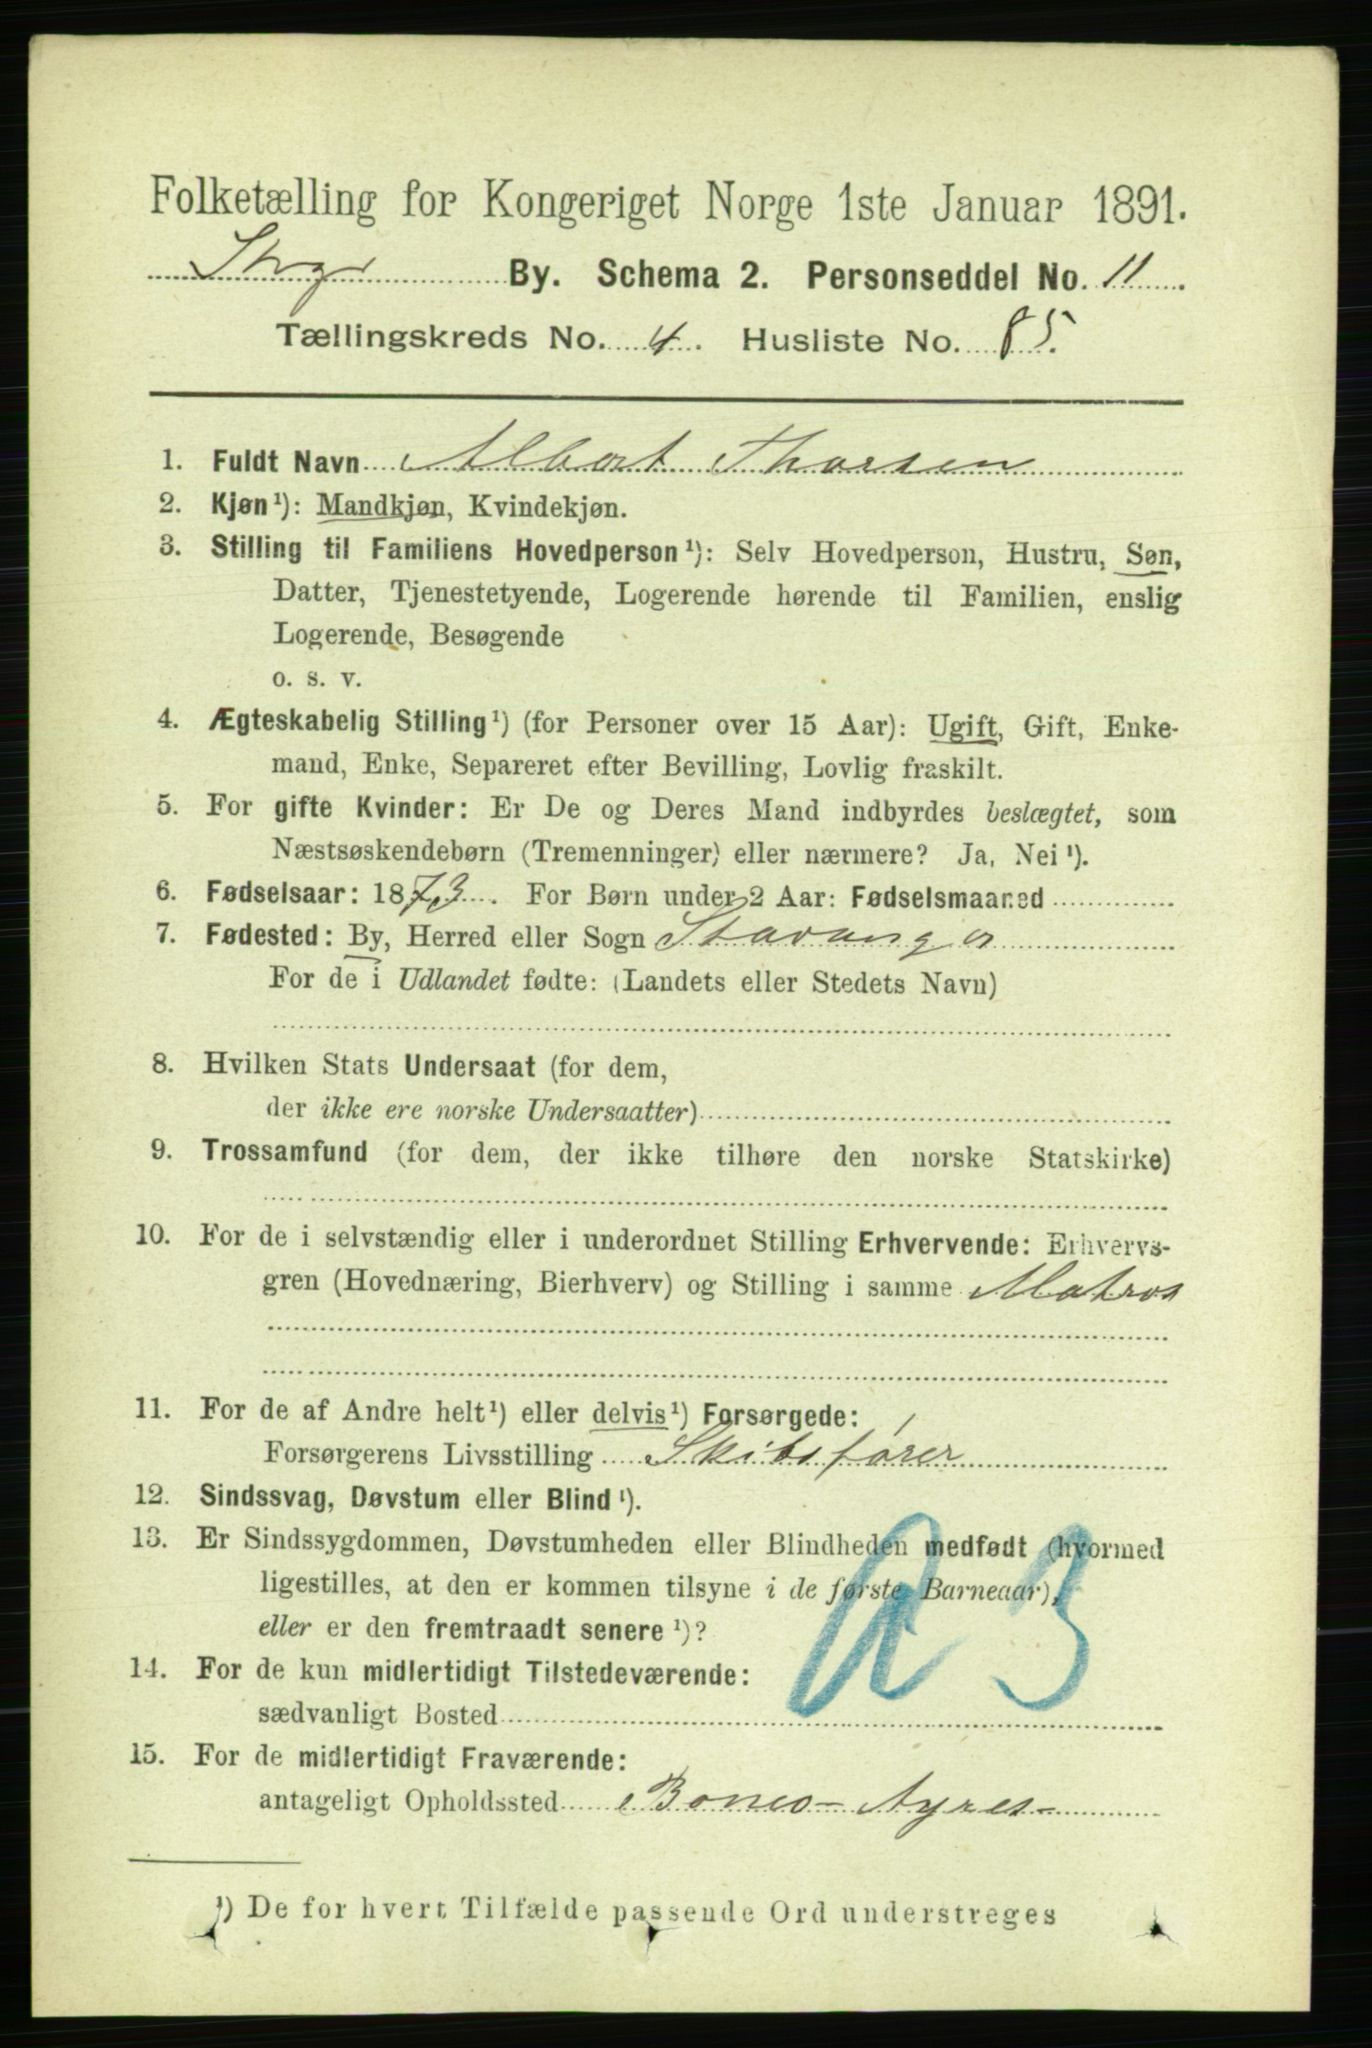 Folketælling for Kongeriget Norge 1ste Januar 1891.
By. Schema 2. Personseddel No. 11
Tællingskreds No. 4. Husliste No. 85.
1. Fuldt Navn Albert Thorsen
2. Kjøn¹): Mandkjøn, Kvindekjøn.
3. Stilling til Familiens Hovedperson¹): Selv Hovedperson, Hustru, Søn,
Datter, Tjenestetyende, Logerende hørende til Familien, enslig
Logerende, Besøgende
o. s. v.
4. Ægteskabelig Stilling¹) (for Personer over 15 Aar): Ugift, Gift, Enke-
mand, Enke, Separeret efter Bevilling, Lovlig fraskilt.
5. For gifte Kvinder: Er De og Deres Mand indbyrdes beslægtet, som
Næstsøskendebørn (Tremenninger) eller nærmere? Ja, Nei¹).
6. Fødselsaar: 1873. For Børn under 2 Aar: Fødselsmaaned
7. Fødested: By, Herred eller Sogn Stavanger
For de i Udlandet fødte: (Landets eller Stedets Navn)
8. Hvilken Stats Undersaat (for dem,
der ikke ere norske Undersaatter)
9. Trossamfund (for dem, der ikke tilhøre den norske Statskirke)
10. For de i selvstændig eller i underordnet Stilling Erhvervende: Erhvervs-
gren (Hovednæring, Bierhverv) og Stilling i samme Matros
11. For de af Andre helt¹) eller delvis¹) Forsørgede:
Forsørgerens Livsstilling Skibsfører
12. Sindssvag, Døvstum eller Blind¹).
13. Er Sindssygdommen, Døvstumheden eller Blindheden medfødt (hvormed
ligestilles, at den er kommen tilsyne i de første Barneaar),
eller er den fremtraadt senere¹)?
14. For de kun midlertidigt Tilstedeværende:
sædvanligt Bosted
15. For de midlertidigt Fraværende:
antageligt Opholdssted Bones-Ayres-
¹) De for hvert Tilfælde passende Ord understreges